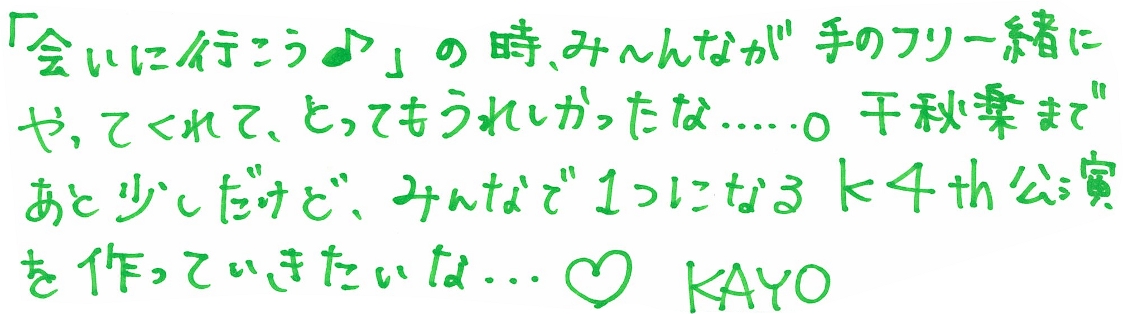 「会いに行こう♪」の時、み〜んなが手のフリ一緒に
やってくれて、とってもうれしかったな……。千秋楽まで
あと少しだけど、みんなで1つになるK4th公演
を作っていきたいな…♡ KAYO